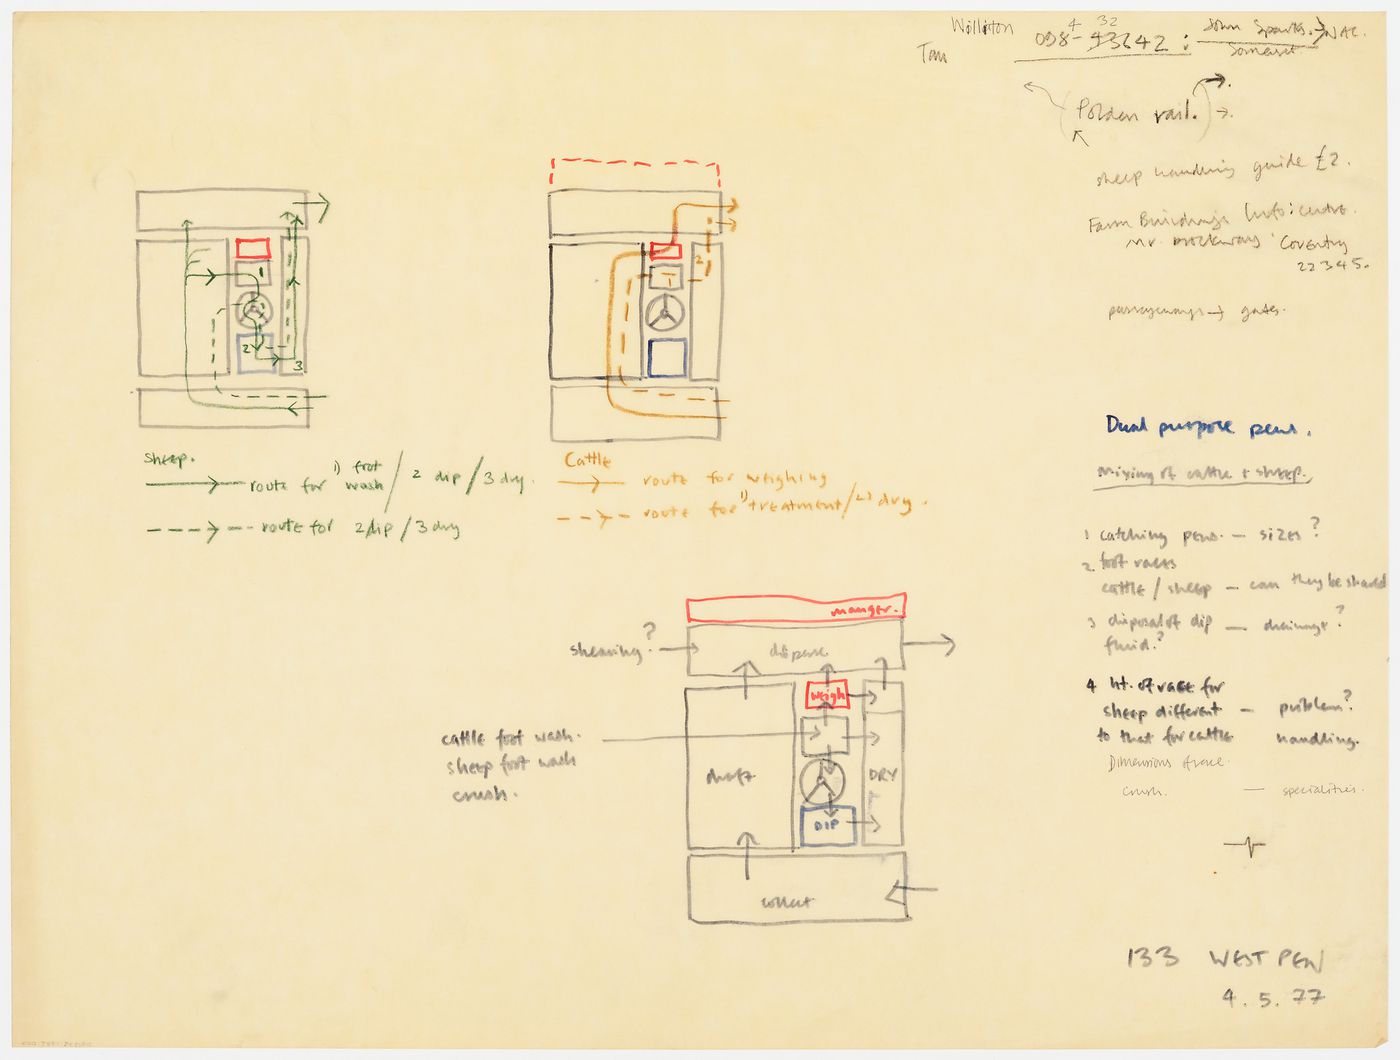 Williton
4 32
Tau 098- 43642 : John Sparks. → NAC.
Somerset
Polden rail.
sheep handling guide £2.
Farm Buildings Info: centre.
Mr. Brockway Coventry
22345.
passageways → gates.
Dual purpose pens.
Mixing of cattle + sheep.
1 catching pens. — sizes?
2. foot races
cattle / sheep — can they be shared
3 disposal of dip — drainage?
fluid.?
4 ht. of race for
sheep different — problem?
to that for cattle handling.
Dimensions of race.
crush. — specialities.
1
2
3
sheep.
route for 1) foot wash / 2 dip / 3 dry.
route for 2 dip / 3 dry
1
2
Cattle
route for weighing
route for 1) treatment / 2) dry.
manger.
shearing?
disperse
weigh
cattle foot wash.
sheep foot wash
crush.
draft
DRY
DIP
collect
133 WEST PEN
4.5.77